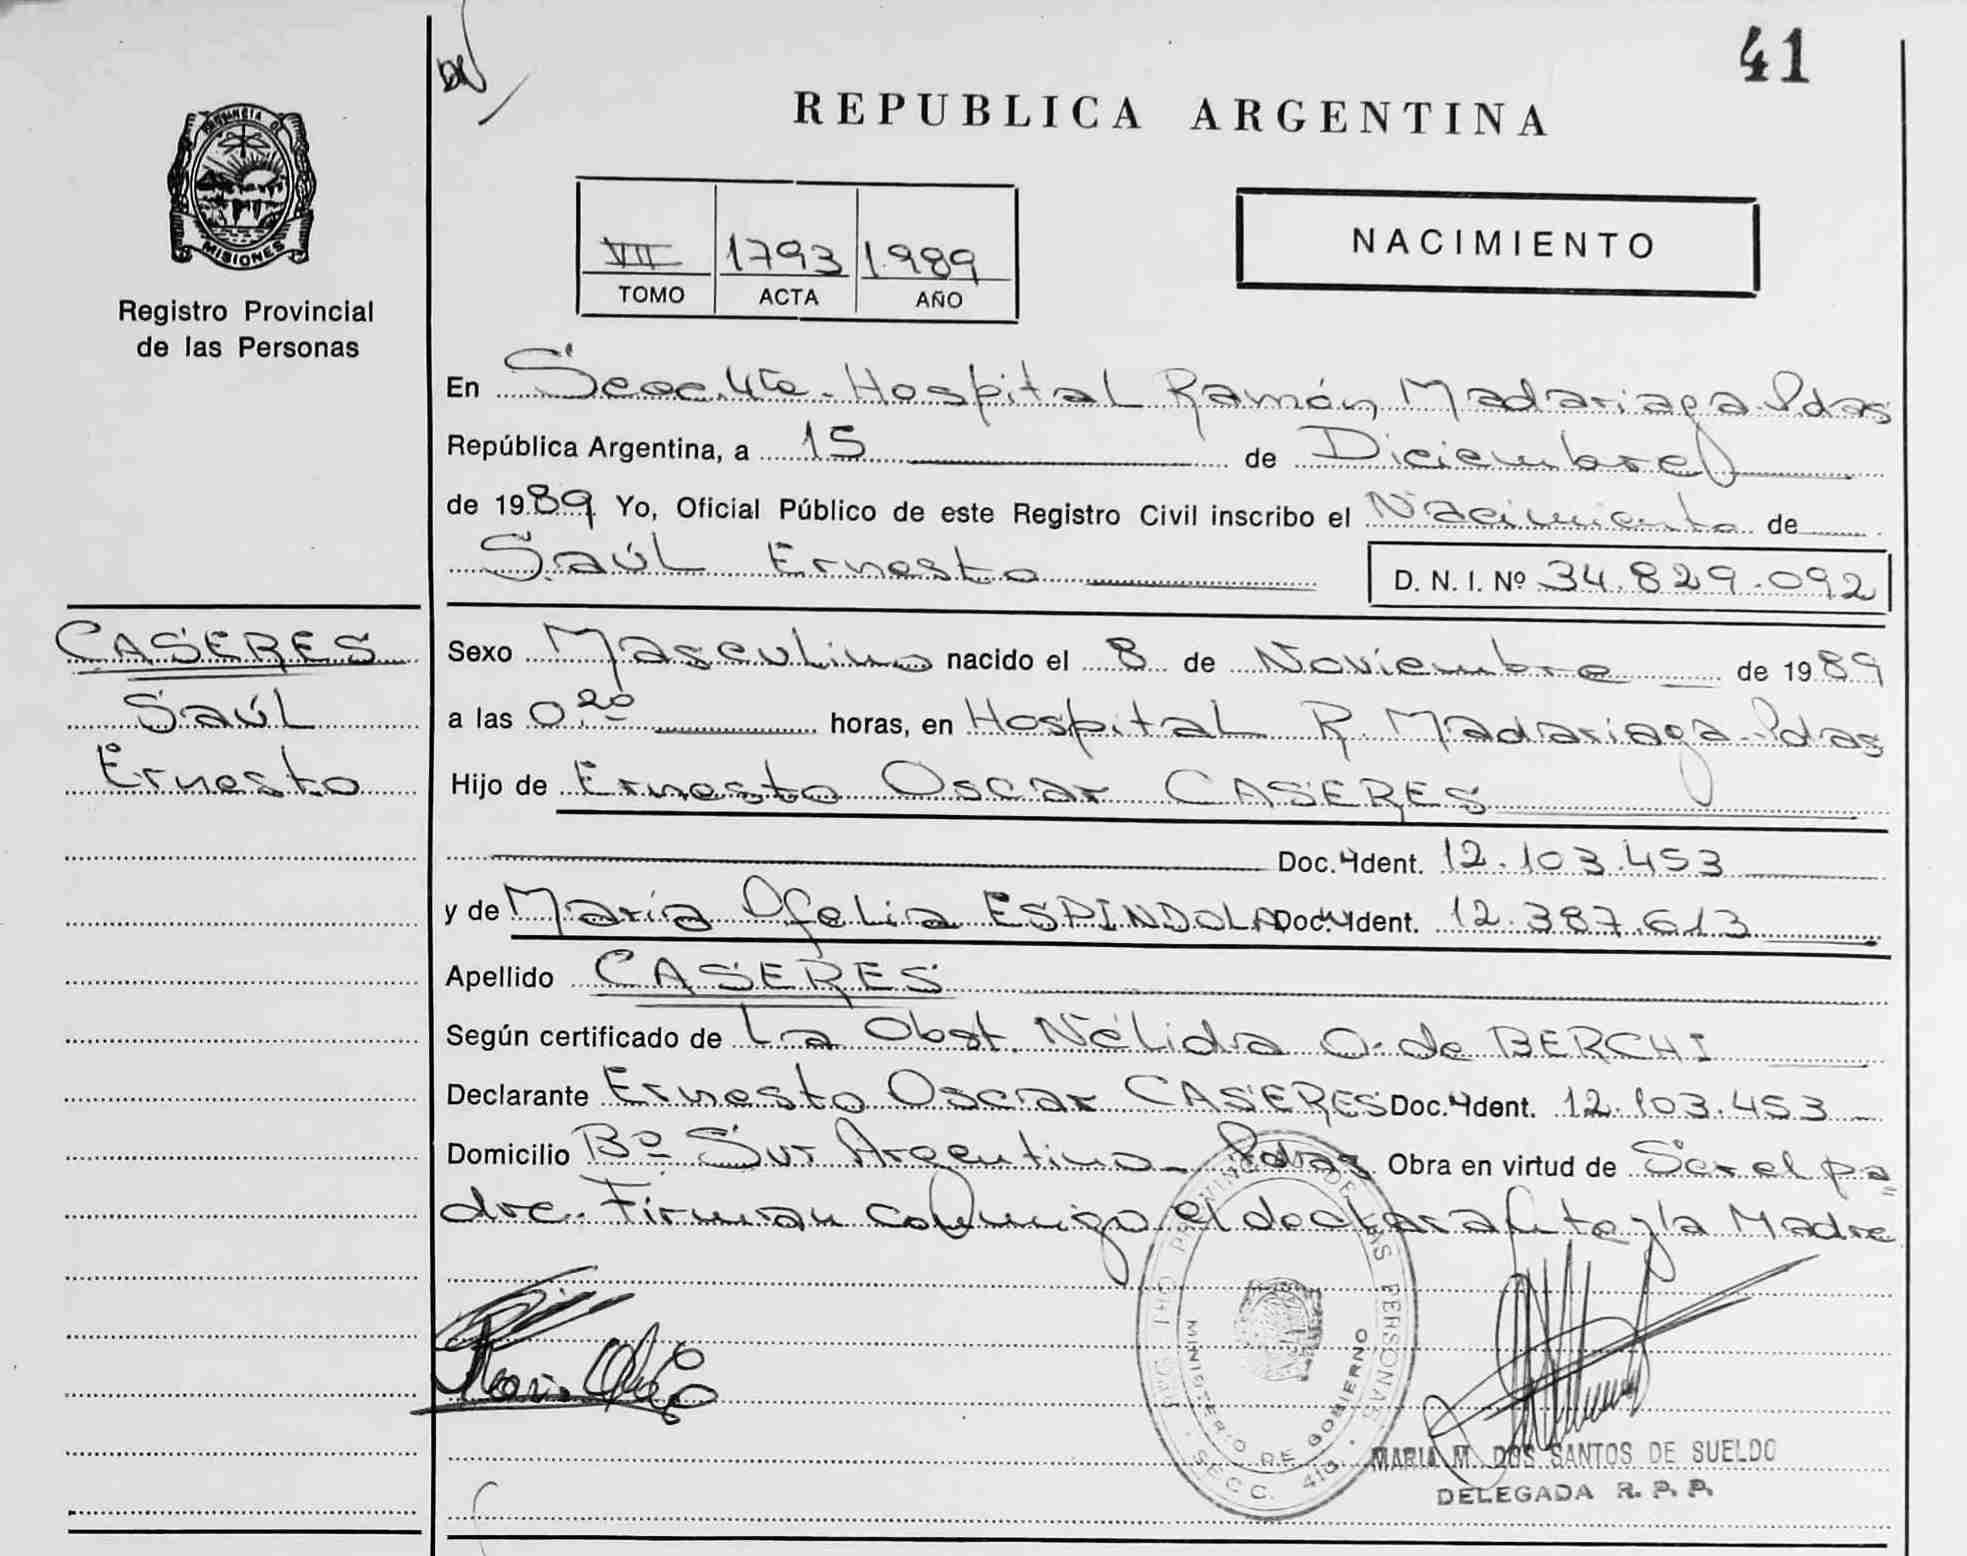 41
REPUBLICA ARGENTINA
PROVINCIA DE
MISIONES
Registro Provincial
de las Personas
VII 1793 1.989
TOMO ACTA AÑO
NACIMIENTO
En Secc. 4ta. Hospital Ramón Madariaga-Pdas
República Argentina, a 15 de Diciembre
de 1989 Yo, Oficial Público de este Registro Civil inscribo el Nacimiento de
Saúl Ernesto D. N. I. Nº 34.829.092
CASERES
Saúl
Ernesto
Sexo Masculino nacido el 8 de Noviembre de 1989
a las 0,20 horas, en Hospital R. Madariaga-Pdas
Hijo de Ernesto Oscar CASERES
Doc. Ident. 12.103.453
y de María Ofelia ESPINDOLA Doc. Ident. 12.387.613
Apellido CASERES
Según certificado de La Obst. Nélida O. de BERCHI
Declarante Ernesto Oscar CASERES Doc. Ident. 12.103.453
Domicilio Bº Sur Argentino - Pdas Obra en virtud de Ser el pa=
dre. Firman conmigo el declarante y la Madre
REGISTRO PROVINCIAL DE LAS PERSONAS
MINISTERIO DE GOBIERNO
SECC. 4ta.
MARIA M. DOS SANTOS DE SUELDO
DELEGADA R. P. P.